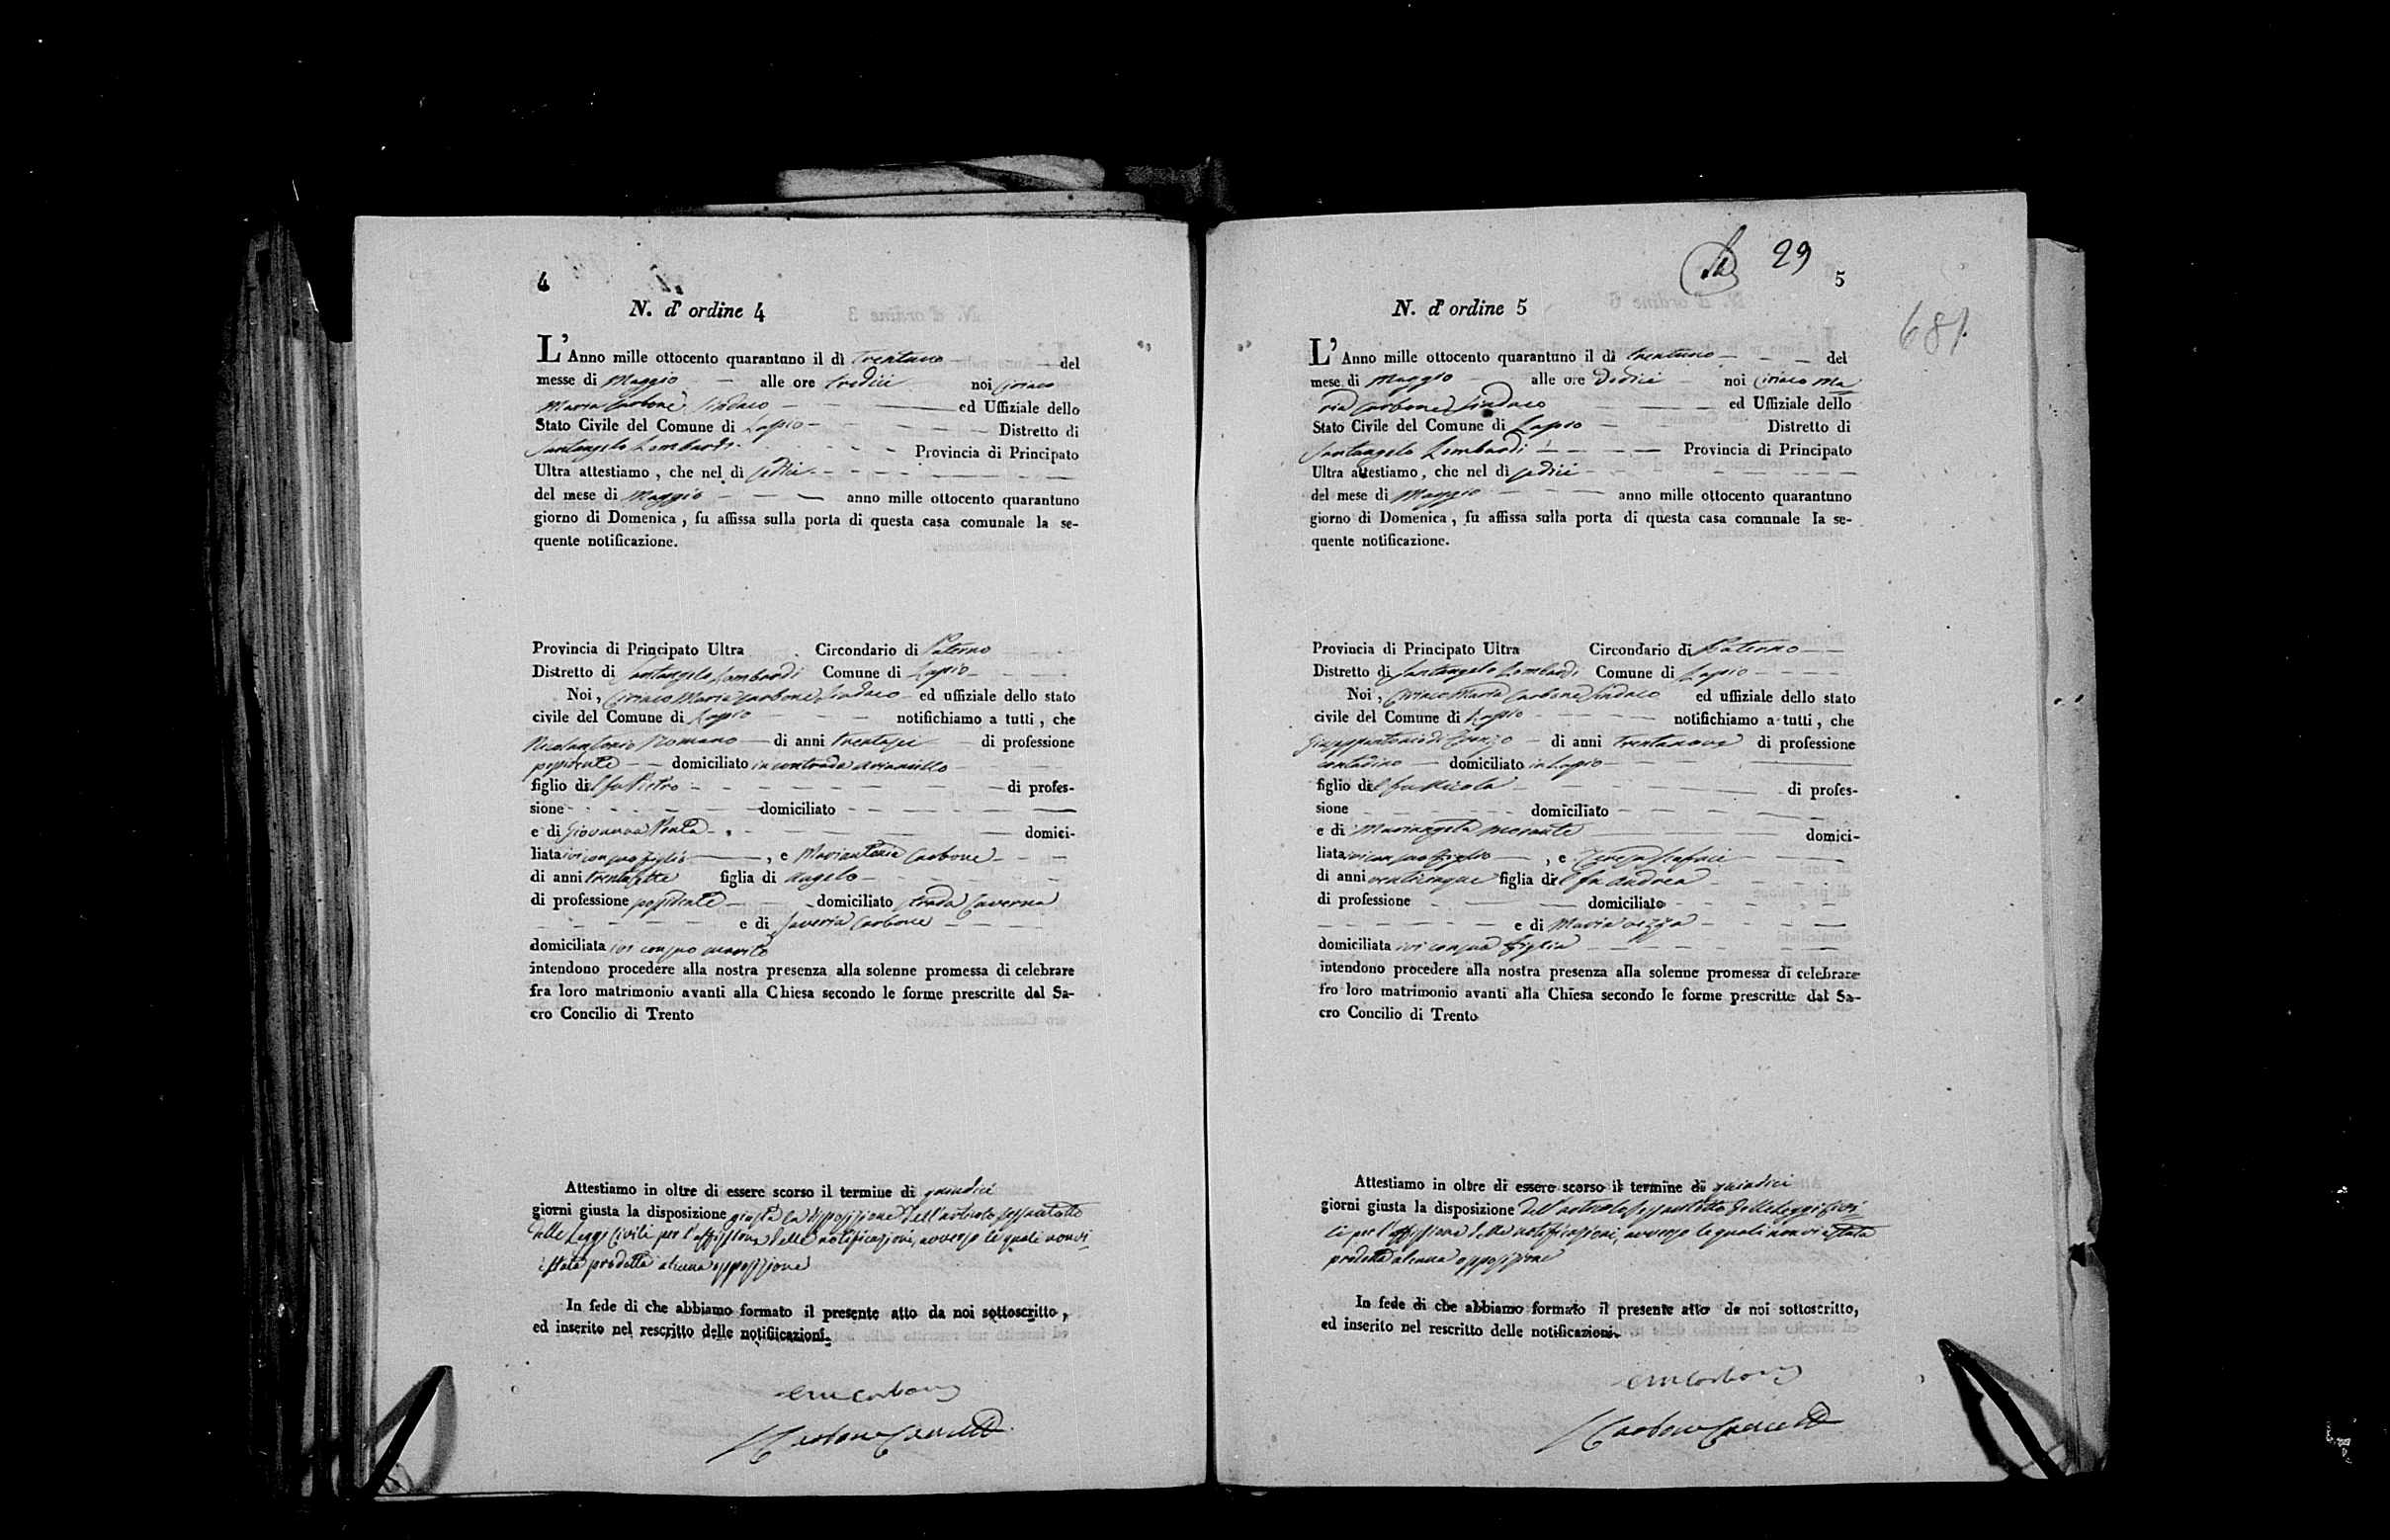 4
N. d' ordine 4
L' Anno mille ottocento quarantuno il dì trentuno del
messe di Maggio alle ore tredici noi Ciriaco
Maria Carbone Sindaco ed Uffiziale dello
Stato Civile del Comune di Lapio Distretto di
Santangelo Lombardi Provincia di Principato
Ultra attestiamo, che nel dì sedici
del mese di Maggio anno mille ottocento quarantuno
giorno di Domenica, fu affissa sulla porta di questa casa comunale la se-
quente notificazione.
Provincia di Principato Ultra Circondario di Paterno
Distretto di Santangelo Lombardi Comune di Lapio
Noi, Ciriaco Maria Carbone Sindaco ed uffiziale dello stato
civile del Comune di Lapio notifichiamo a tutti, che
Nicolantonio Romano di anni trentasei di professione
possidente domiciliato in contrada
figlio del fu Pietro di profes-
sione domiciliato
e di Giovanna Penta domici-
liata ivi con suo figlio, e Mariantonia Carbone
di anni trentasette figlia di Angelo
di professione possidente domiciliato strada Taverna
e di Saveria Carbone
domiciliata ivi con suo marito
intendono procedere alla nostra presenza alla solenne promessa di celebrare
fra loro matrimonio avanti alla Chiesa secondo le forme prescritte dal Sa-
cro Concilio di Trento
Attestiamo in oltre di essere scorso il termine di quindici
giorni giusta la disposizione giusta la disposizione dell'articolo sessantotto
delle Leggi Civili per l'affissione delle notificazioni, avverso le quali non vi
è stata prodotta alcuna opposizione
In fede di che abbiamo formato il presente atto da noi sottoscritto,
ed inserito nel rescritto delle notifiicazioni.
CM Carbone
Carbone
29
5
681.
N. d' ordine 5
L' Anno mille ottocento quarantuno il dì trentuno del
mese di Maggio alle ore dodici noi Ciriaco Ma
ria Carbone Sindaco ed Uffiziale dello
Stato Civile del Comune di Lapio Distretto di
Santangelo Lombardi Provincia di Principato
Ultra attestiamo, che nel dì sedici
del mese di Maggio anno mille ottocento quarantuno
giorno di Domenica, fu affissa sulla porta di questa casa comunale la se-
quente notificazione.
Provincia di Principato Ultra Circondario di Paterno
Distretto di Santangelo Lombardi Comune di Lapio
Noi, Ciriaco Maria Carbone Sindaco ed uffiziale dello stato
civile del Comune di Lapio notifichiamo a tutti, che
Giuseppantonio di di anni trentanove di professione
contadino domiciliato in Lapio
figlio del fu Nicola di profes-
sione domiciliato
e di Mariangela Morante domici-
liata ivi con suo figlio, e Teresa
di anni venticinque figlia del fu Andrea
di professione domiciliato
e di Maria
domiciliata ivi con sua figlia
intendono procedere alla nostra presenza alla solenne promessa di celebrare
fro loro matrimonio avanti alla Chiesa secondo le forme prescritte dal Sa-
cro Concilio di Trento
Attestiamo in oltre di essere scorso il termine di quindici
giorni giusta la disposizione dell'articolo sessantotto delle Leggi Civi
li per l'affissione delle notificazioni, avverso le quali non vi è stata
prodotta alcuna opposizione
In fede di che abbiamo formato il presente atto da noi sottoscritto,
ed inserito nel rescritto delle notificazioni.
CM Carbone
Carbone